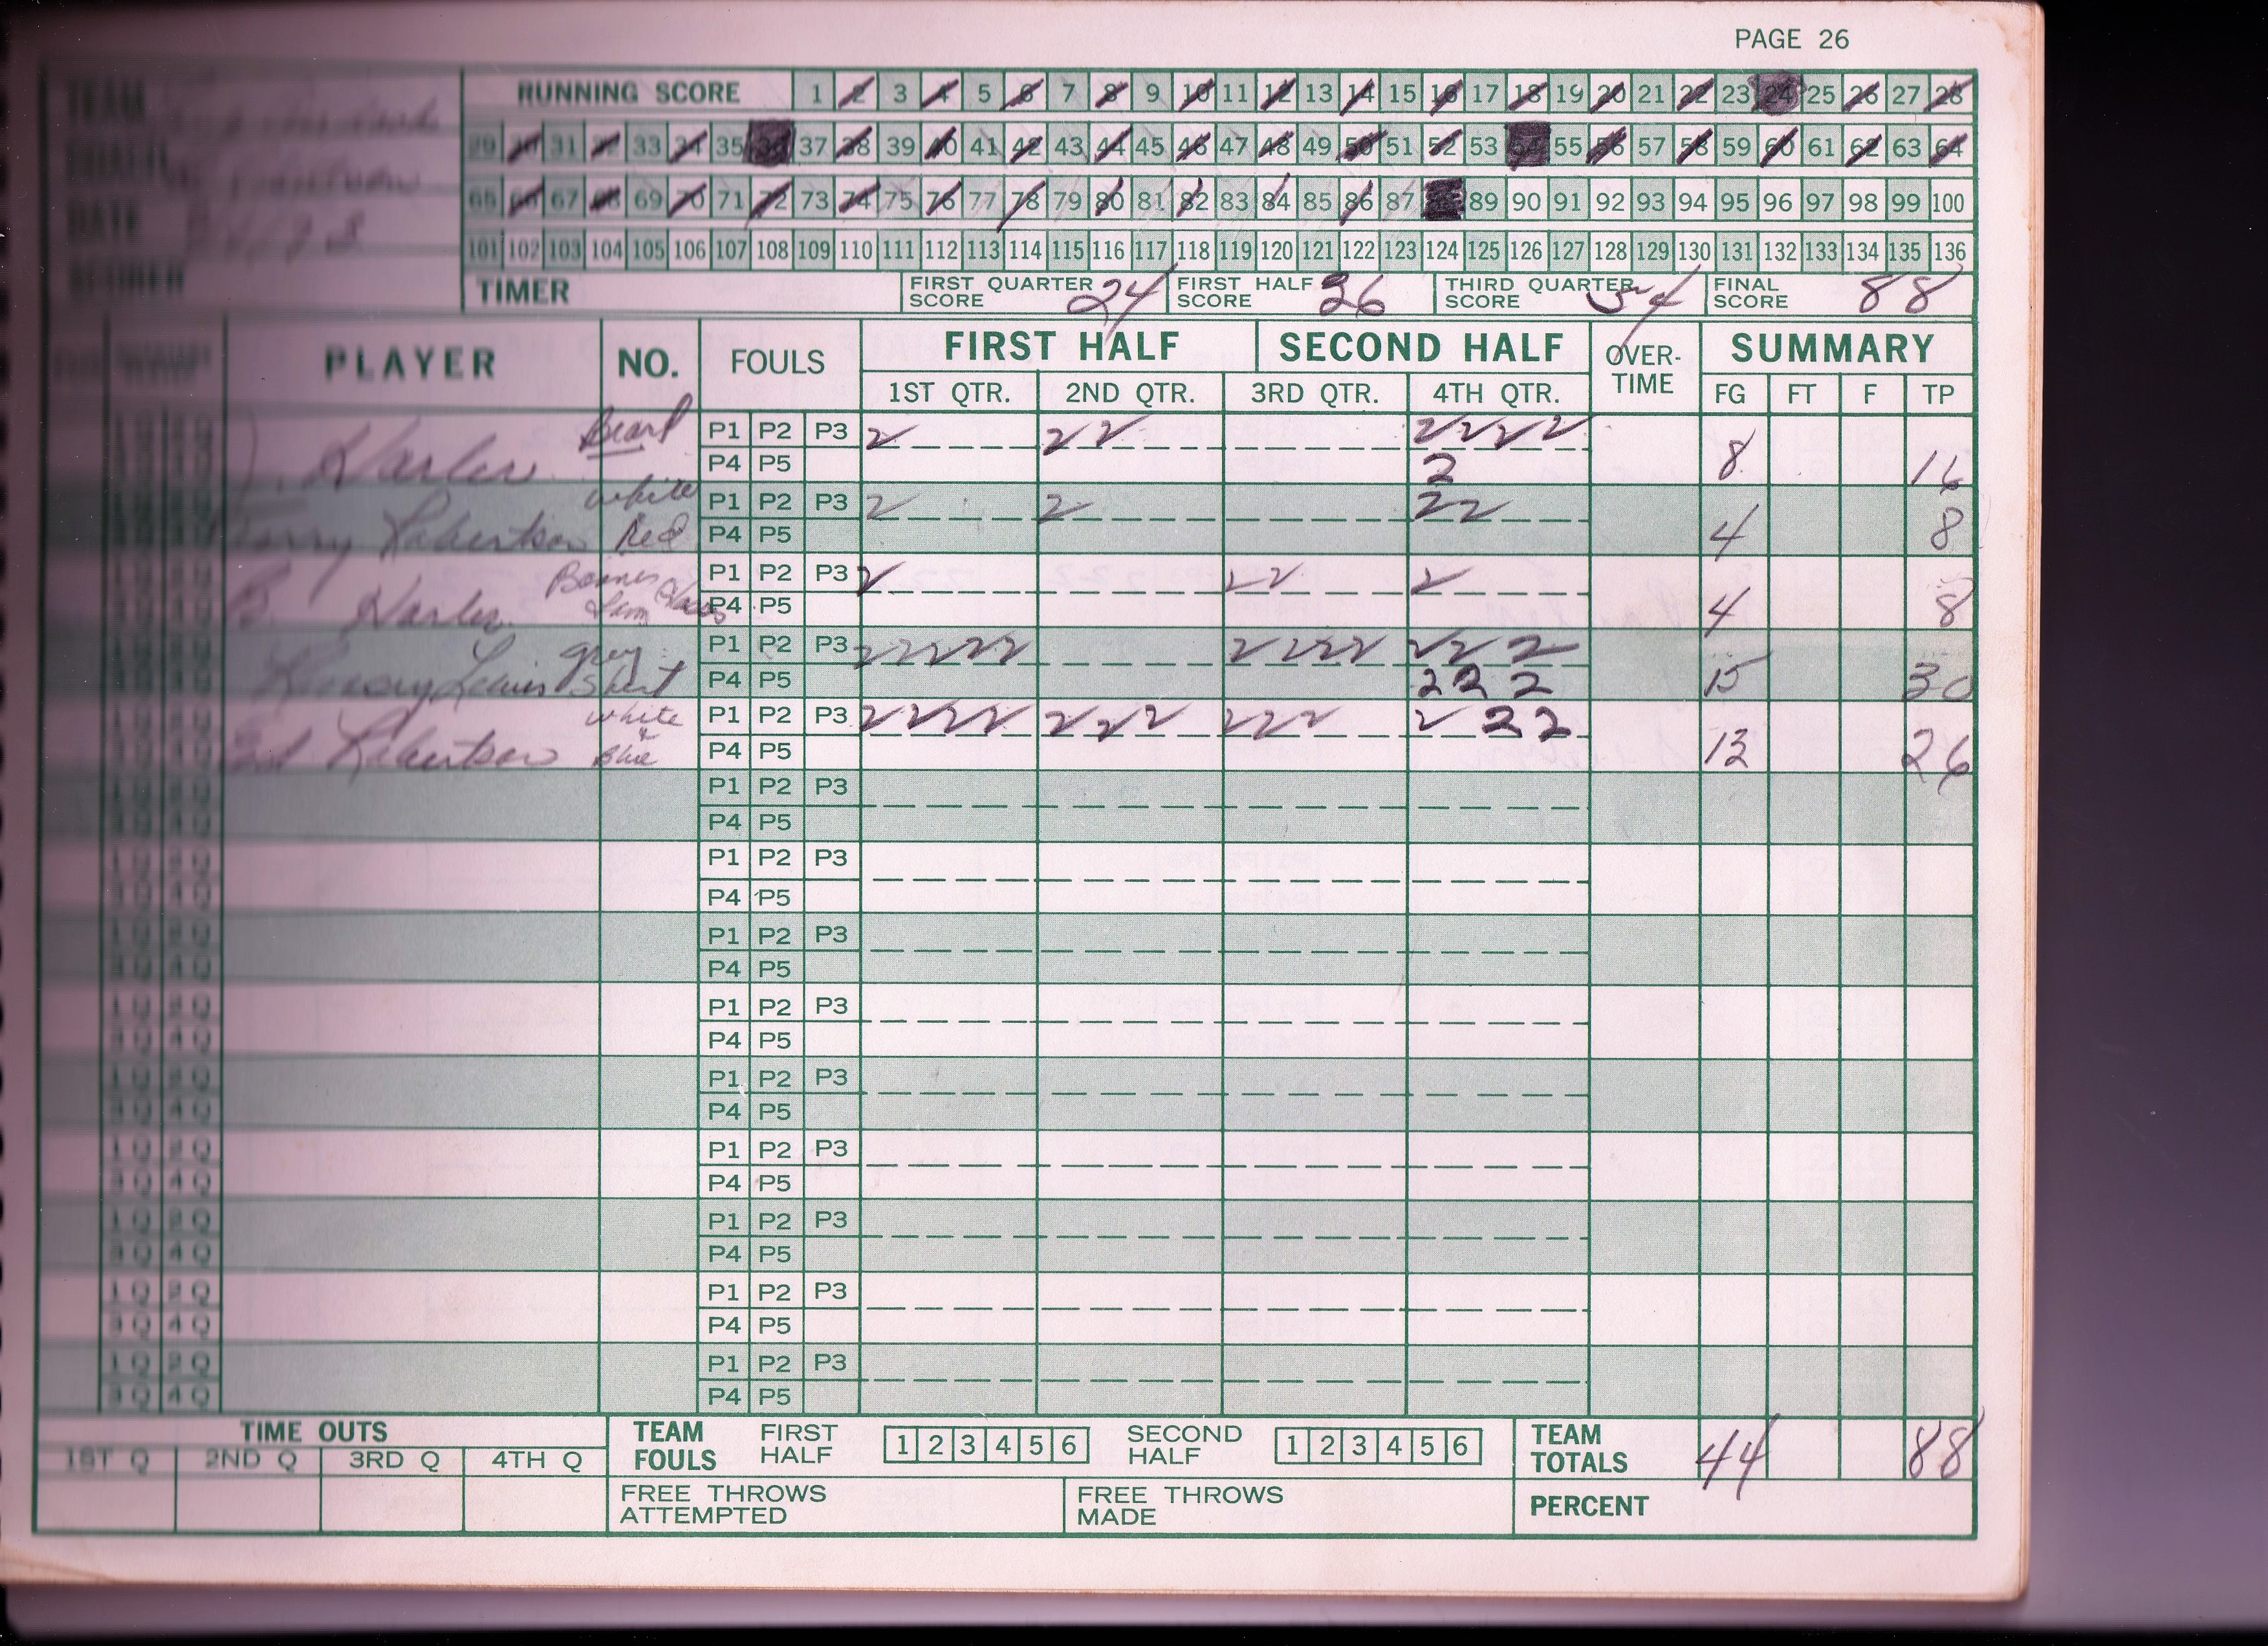 PAGE 26
TEAM
RUNNING SCORE 1 2 3 4 5 6 7 8 9 10 11 12 13 14 15 16 17 18 19 20 21 22 23 24 25 26 27 28
29 30 31 32 33 34 35 36 37 38 39 40 41 42 43 44 45 46 47 48 49 50 51 52 53 54 55 56 57 58 59 60 61 62 63 64
COACH
65 66 67 68 69 70 71 72 73 74 75 76 77 78 79 80 81 82 83 84 85 86 87 88 89 90 91 92 93 94 95 96 97 98 99 100
DATE
101 102 103 104 105 106 107 108 109 110 111 112 113 114 115 116 117 118 119 120 121 122 123 124 125 126 127 128 129 130 131 132 133 134 135 136
SCORER
TIMER FIRST QUARTER SCORE 24 FIRST HALF SCORE 36 THIRD QUARTER SCORE 54 FINAL SCORE 88
PLAYER NO. FOULS FIRST HALF SECOND HALF OVER-TIME SUMMARY
1ST QTR. 2ND QTR. 3RD QTR. 4TH QTR. FG FT F TP
J. Harler Beard P1 P2 P3 2 2 2 2 2 2 2
P4 P5 2 8 16
Terry Robertson white Red P1 P2 P3 2 2 2 2
P4 P5 4 8
B. Harler P1 P2 P3 2 2 2 2
P4 P5 4 8
Lewis grey shirt P1 P2 P3 2 2 2 2 2 2 2 2 2 2 2 2
P4 P5 2 2 2 15 30
Ed Robertson white & Blue P1 P2 P3 2 2 2 2 2 2 2 2 2 2 2 2 2
P4 P5 13 26
1Q 2Q P1 P2 P3
3Q 4Q P4 P5
1Q 2Q P1 P2 P3
3Q 4Q P4 P5
1Q 2Q P1 P2 P3
3Q 4Q P4 P5
1Q 2Q P1 P2 P3
3Q 4Q P4 P5
1Q 2Q P1 P2 P3
3Q 4Q P4 P5
1Q 2Q P1 P2 P3
3Q 4Q P4 P5
1Q 2Q P1 P2 P3
3Q 4Q P4 P5
1Q 2Q P1 P2 P3
3Q 4Q P4 P5
1Q 2Q P1 P2 P3
3Q 4Q P4 P5
TIME OUTS TEAM FOULS FIRST HALF 1 2 3 4 5 6 SECOND HALF 1 2 3 4 5 6 TEAM TOTALS 44 88
1ST Q 2ND Q 3RD Q 4TH Q
FREE THROWS ATTEMPTED FREE THROWS MADE PERCENT